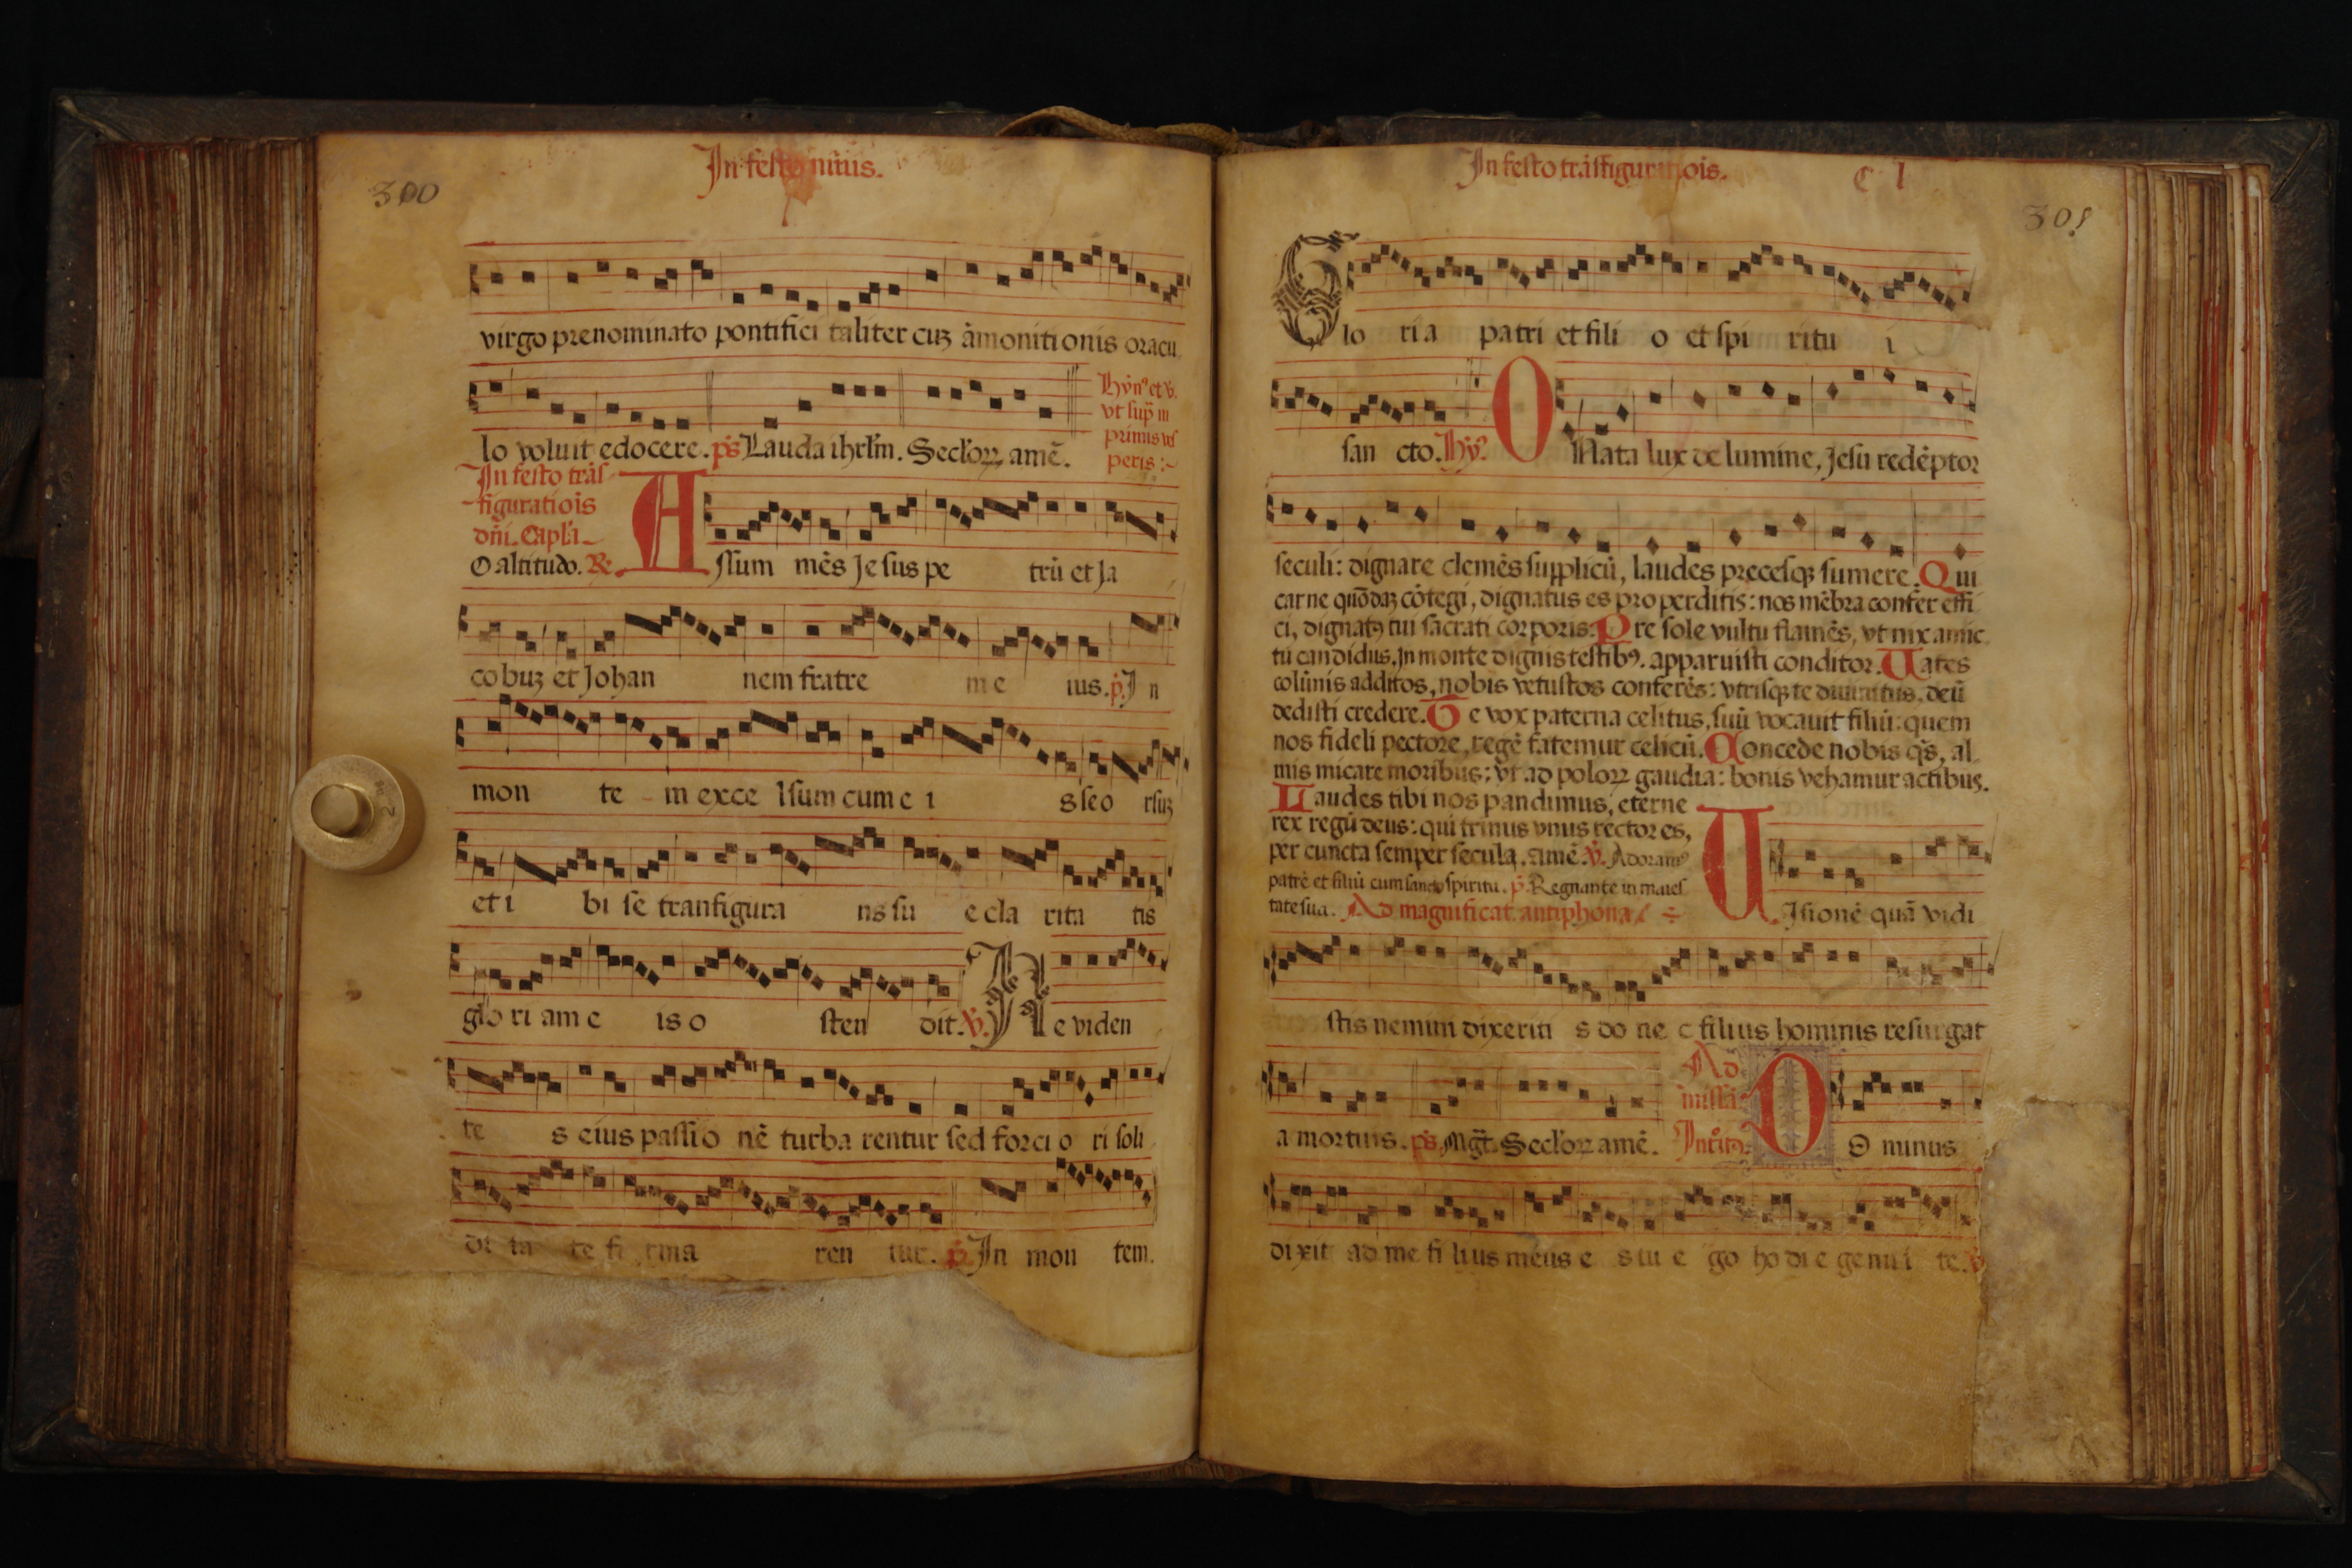 300
In festo niuis.
virgo prenominato pontifici taliter cuȝ āmonitionis oracu
lo voluit edocere. ps̄ Lauda ihrl̄m. Secl'oꝝ amē.
Hȳn⁹ et v̄.
vt sup̄ in
primis ves
peris :~
In festo trās
figuratiōis
dn̄i. Capl'a
O altitudo. R̄.
Assum mēs Je sus pe trū et Ja
cobuȝ et Johan nem fratre m e ius. p̄. I n
mon te m exce lsum cum e i s seo rsuȝ
et i bi se tranfigura ns su e cla rita tis
glo ri am e is o sten dit. v̄. N e viden
te s eius passio nē turba rentur sed forci o ri soli
di ta te fi rma ren tur. p̄. In mon tem.
In festo trāsfigur ois.
C l
301
Glo ri a patri et fili o et spi ritu i
san cto. Hȳ⁹. O Nata lux de lumine, Jesu redēptor
seculi: dignare clemēs supplicū, laudes precesqꝫ sumere. Qui
carne quōdaȝ cōtegi, dignatus es pro perditis: nos mēbra confer effi
ci, dignatꝰ tui sacrati corporis. Pre sole vultu flamēs, vt nix amic
tu candidus. In monte dignis testibꝰ. apparuisti conditor. Uates
colūnis additos, nobis vetustos conferēs: vtrisqꝫ te diuinitus, deū
dedisti credere. Te vox paterna celitus, suū vocauit filiū: quem
nos fideli pectore, regē fatemur celicū. Concede nobis qs̄, al
mis micare moribus: vt ad poloꝝ gaudia: bonis vehamur actibus.
Laudes tibi nos pandimus, eterne
rex regū deus: qui trinus vnus rector es,
per cuncta semper secula. amē. v̄. Adoram⁹
patrē et filiū cum sancto spiritu. p̄. Regnante in maies
tate sua. Ad magnificat antiphona.
Uisionē quā vidi
stis nemini dixeriti s do ne c filius hominis resurgat
a mortuis. ps̄. Mgt̄. Secl'oꝝ amē.
Ad
missā.
Introitꝰ.
D O minus
dixit ad me fi li us meus e s tu e go ho di e genui te. v̄